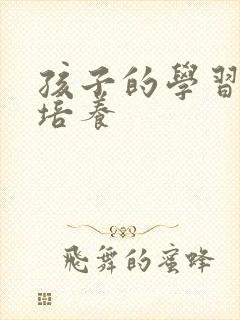 孩子的學習
培養
飛舞的蜜蜂